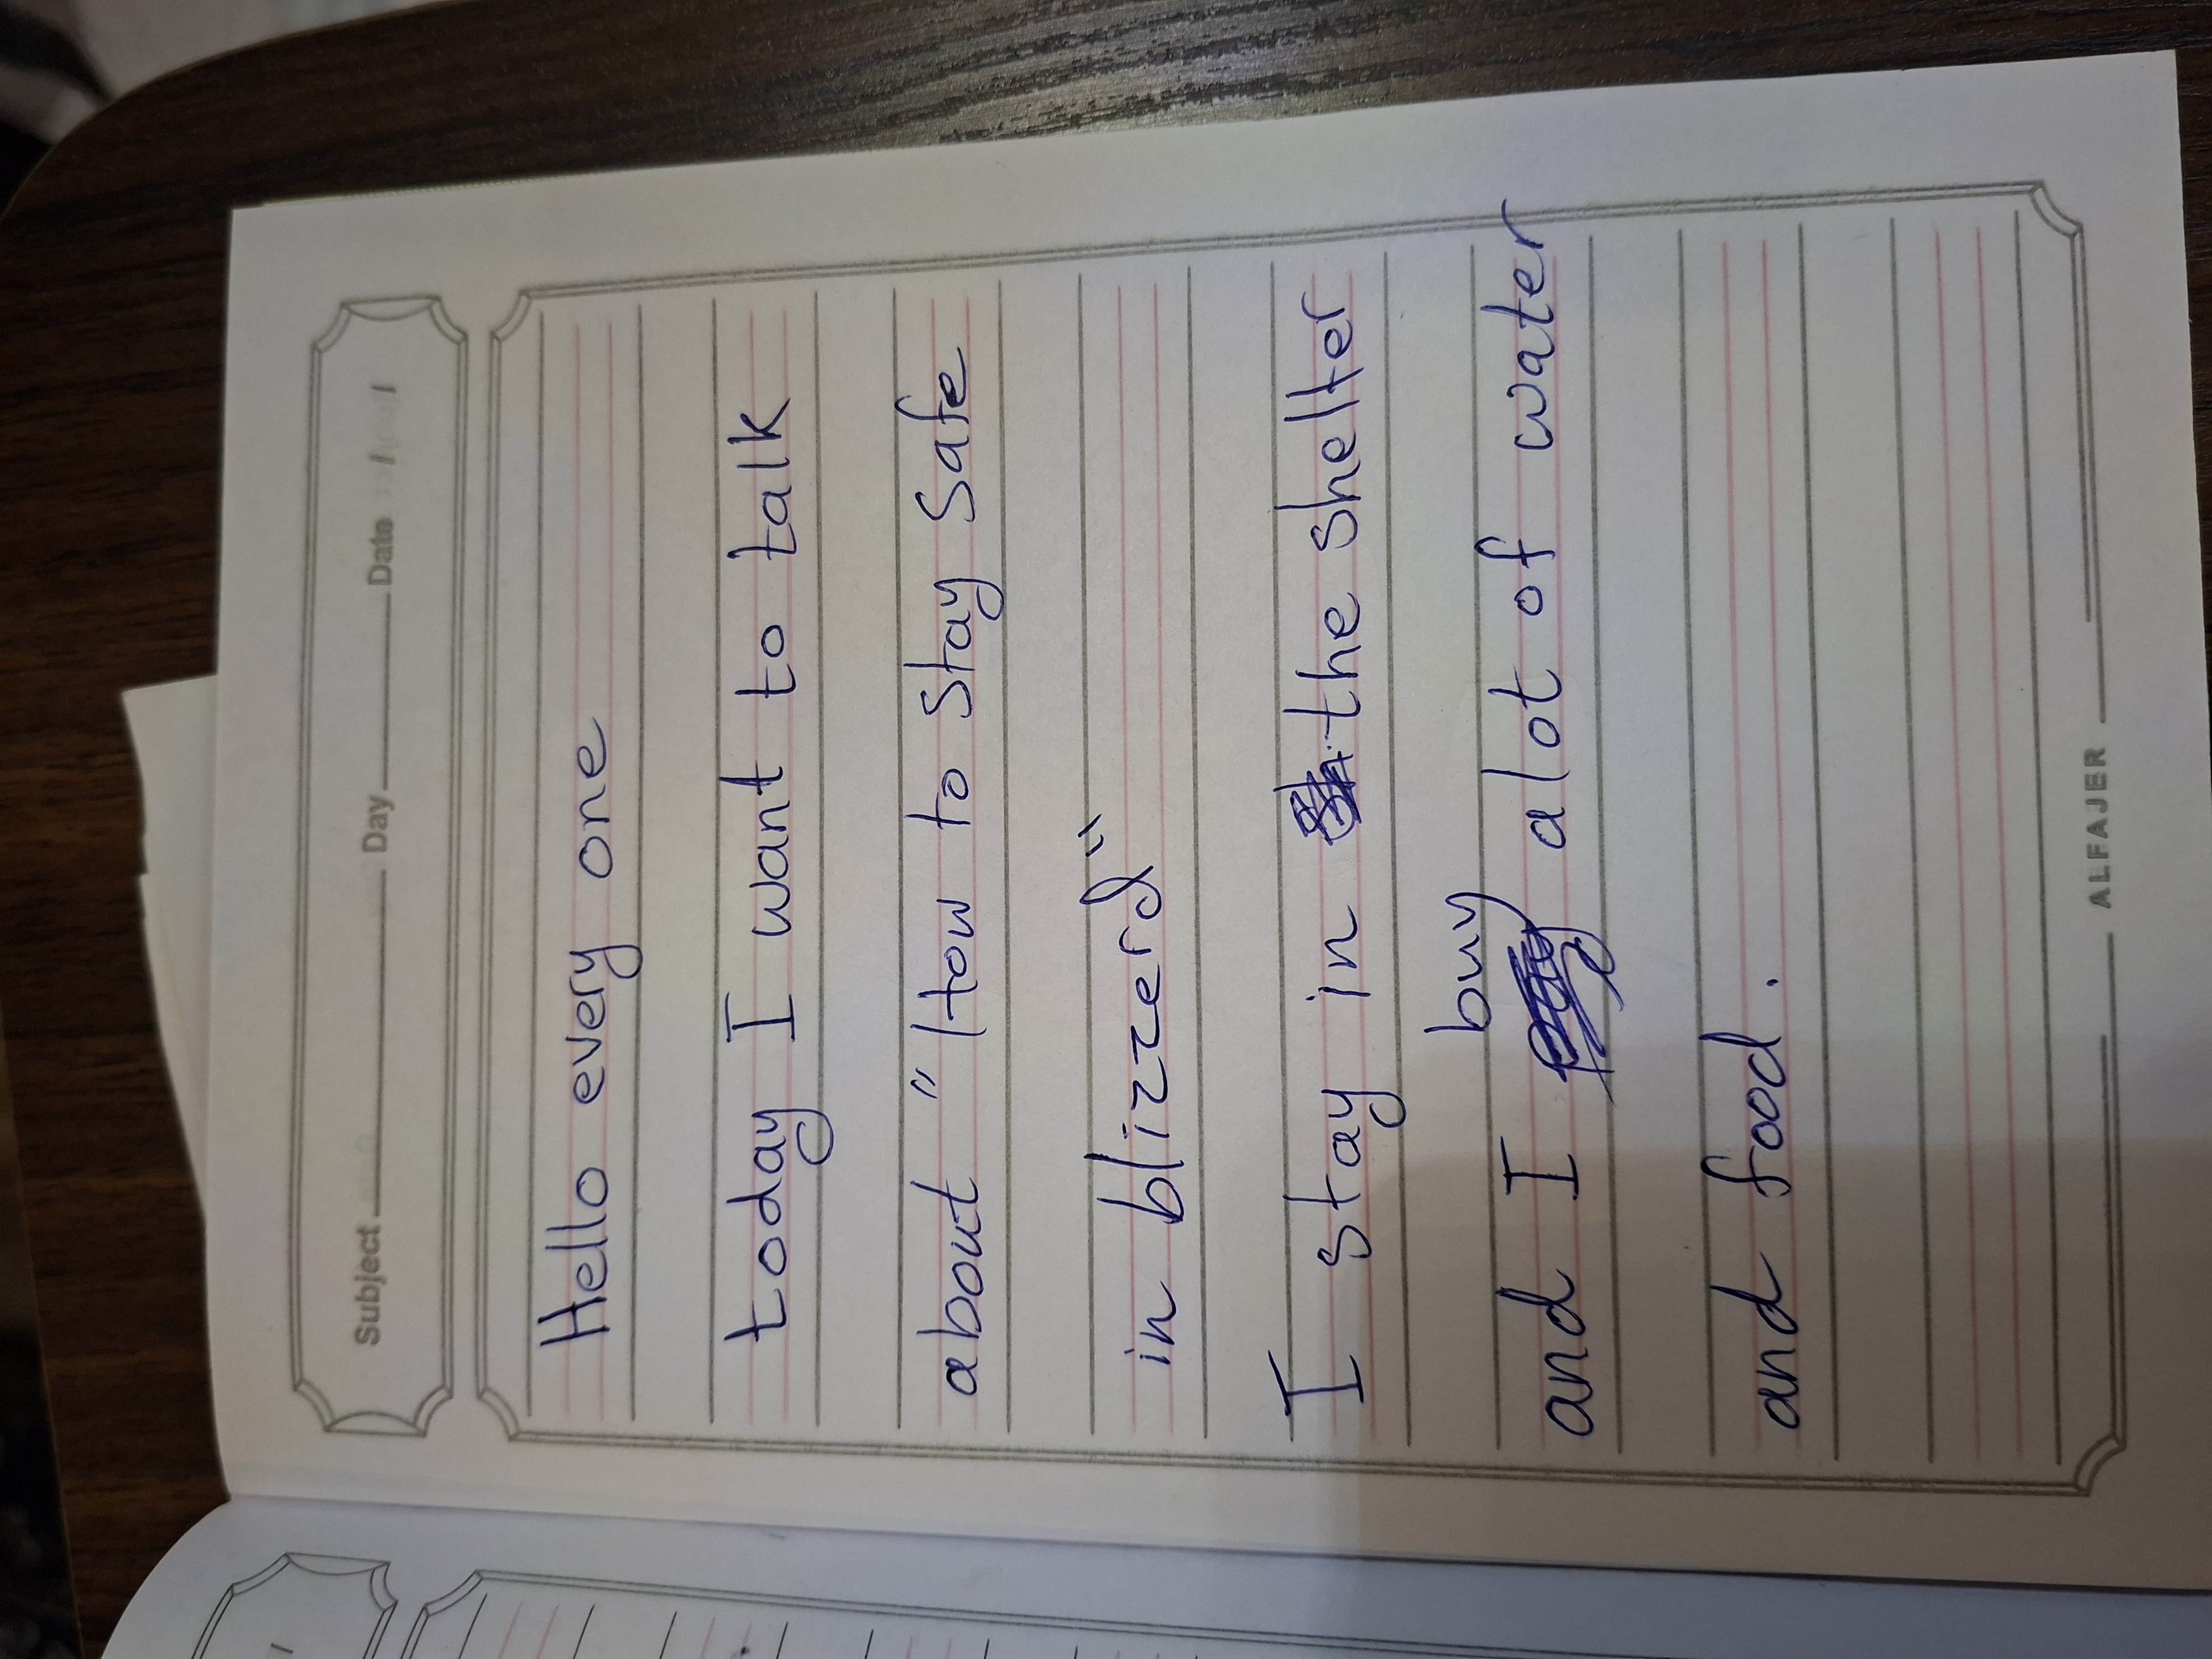 Subject Day Date / /
Hello every one
today I want to talk
about "How to stay safe
in blizzerd"
I stay in the shelter
and I buy alot of water
and food.
ALFAJER